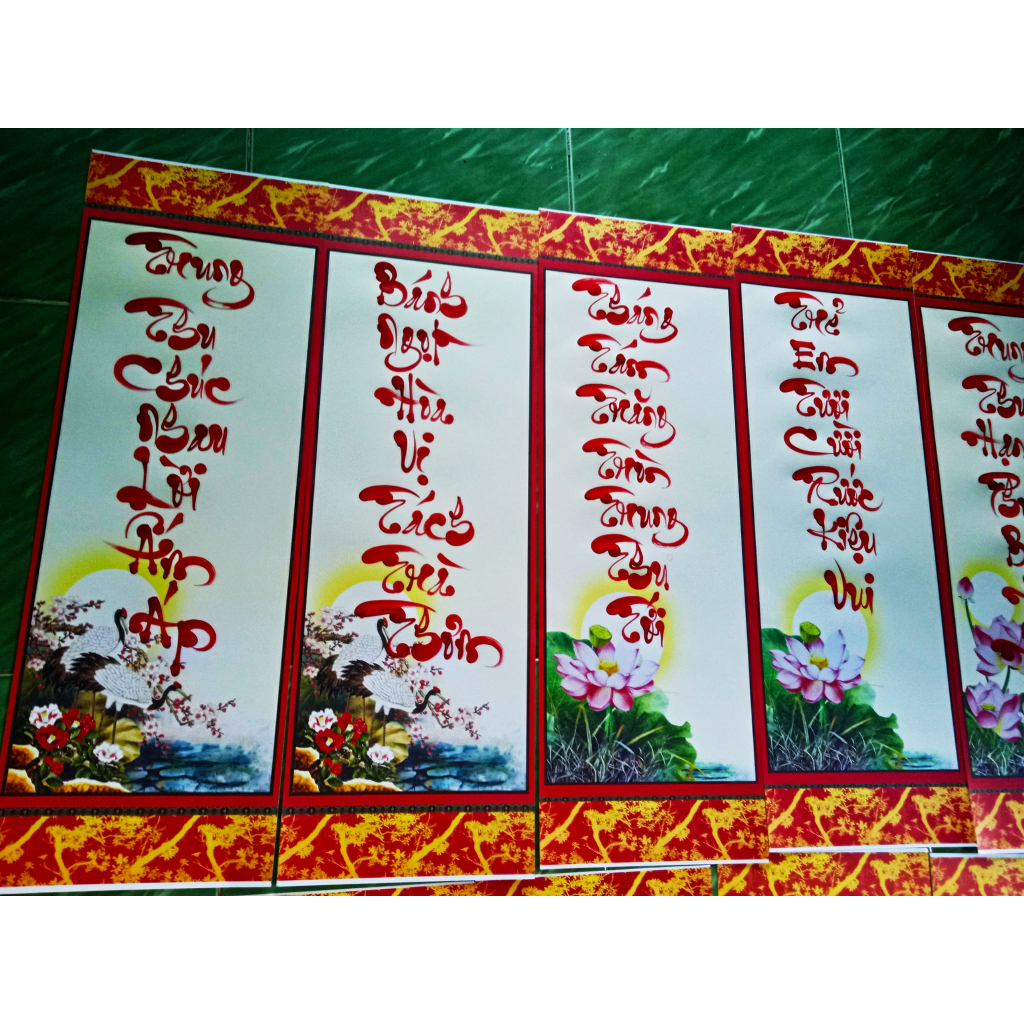 Trung Thu Chúc Nhau Lời Ấm Áp
Bánh Ngọt Hòa Vị Tách Trà Thơm
Tháng Tám Trăng Tròn Trung Thu Tới
Trẻ Em Tươi Cười Rước Kiệu Vui
Trung Thu